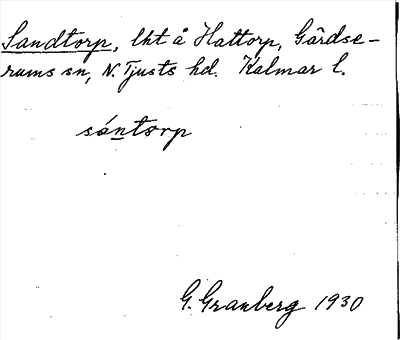 Sandtorp, lht å Hattorp, Gärdse-
rums sn, N. Tjusts hd. Kalmar l.
sántorp
G. Granberg 1930